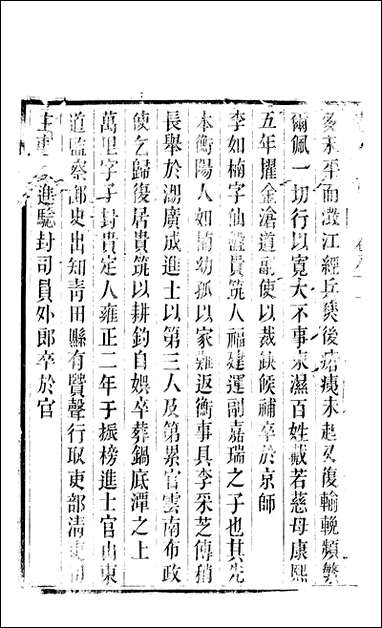 多未平而澂江經兵燹後瘡痍未起又復輸輓頻繁
爾佩一切行以寬大不事束濕百姓戴若慈母康熙
五年擢金滄道副使以裁缺候補卒於京師
李如楠字仙盤貴筑人福建運副嘉瑞之子也其先
本衡陽人如楠幼孤以家難返衡事具李采芝傳稍
長舉於湖廣成進士以第三人及第累官雲南布政
使乞歸復居貴筑以耕釣自娛卒葬鍋底潭之上
萬里字子封貴定人雍正二年于振榜進士官山東
道監察御史出知青田縣有賢聲行取吏部清吏司
主事 進驗封司員外郎卒於官